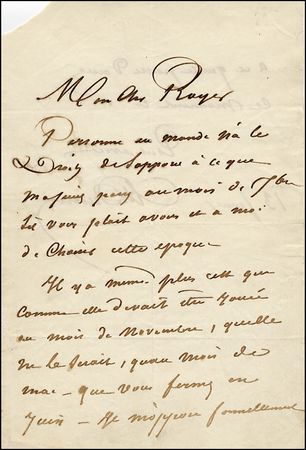 Mon cher Royer
Personne au monde n'a le
Droit de s'oppose à ce que
majeure pary au mois de 7bre
s'il vous plait a vous et a moi
de Choisir cette epoque -
Il y a meme plus c'est que
comme elle devait être jouée
au mois de Novembre, qu'elle
ne le serait, qu'au mois de
mai - que vous fermez en
Juin - Je m'oppose formellement